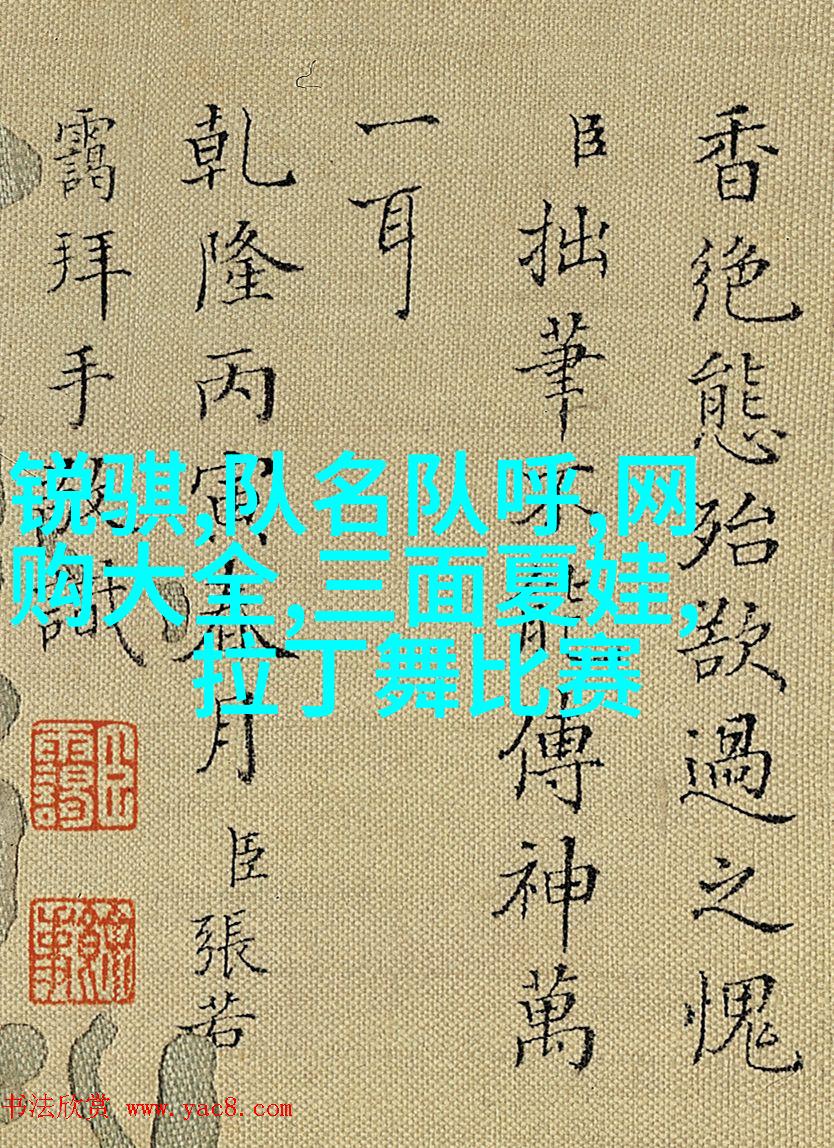 香絕態殆欲過之愧
臣拙筆不能傳神萬
一耳
乾隆丙寅春月臣張若
靄拜手敬識
锐骐,队名队呼,网
购大全,三面夏娃,
拉丁舞比赛
书法欣赏 www.yac8.com